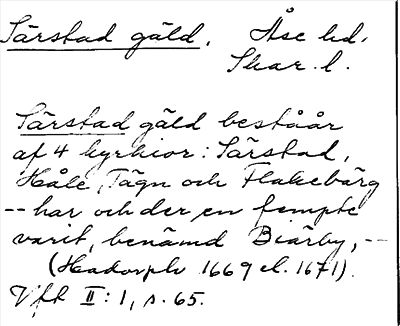 Särstad gäld. Åse hd.
Skar. l.
Särstad gäld beståår
af 4 kyrkior: Särstad,
Håle, Tägn och Flakebärg
-- har och der en fempte
varit, benämd Biärby, --
(Hadorph 1669 el. 1671).
Vfk II: 1, s. 65.